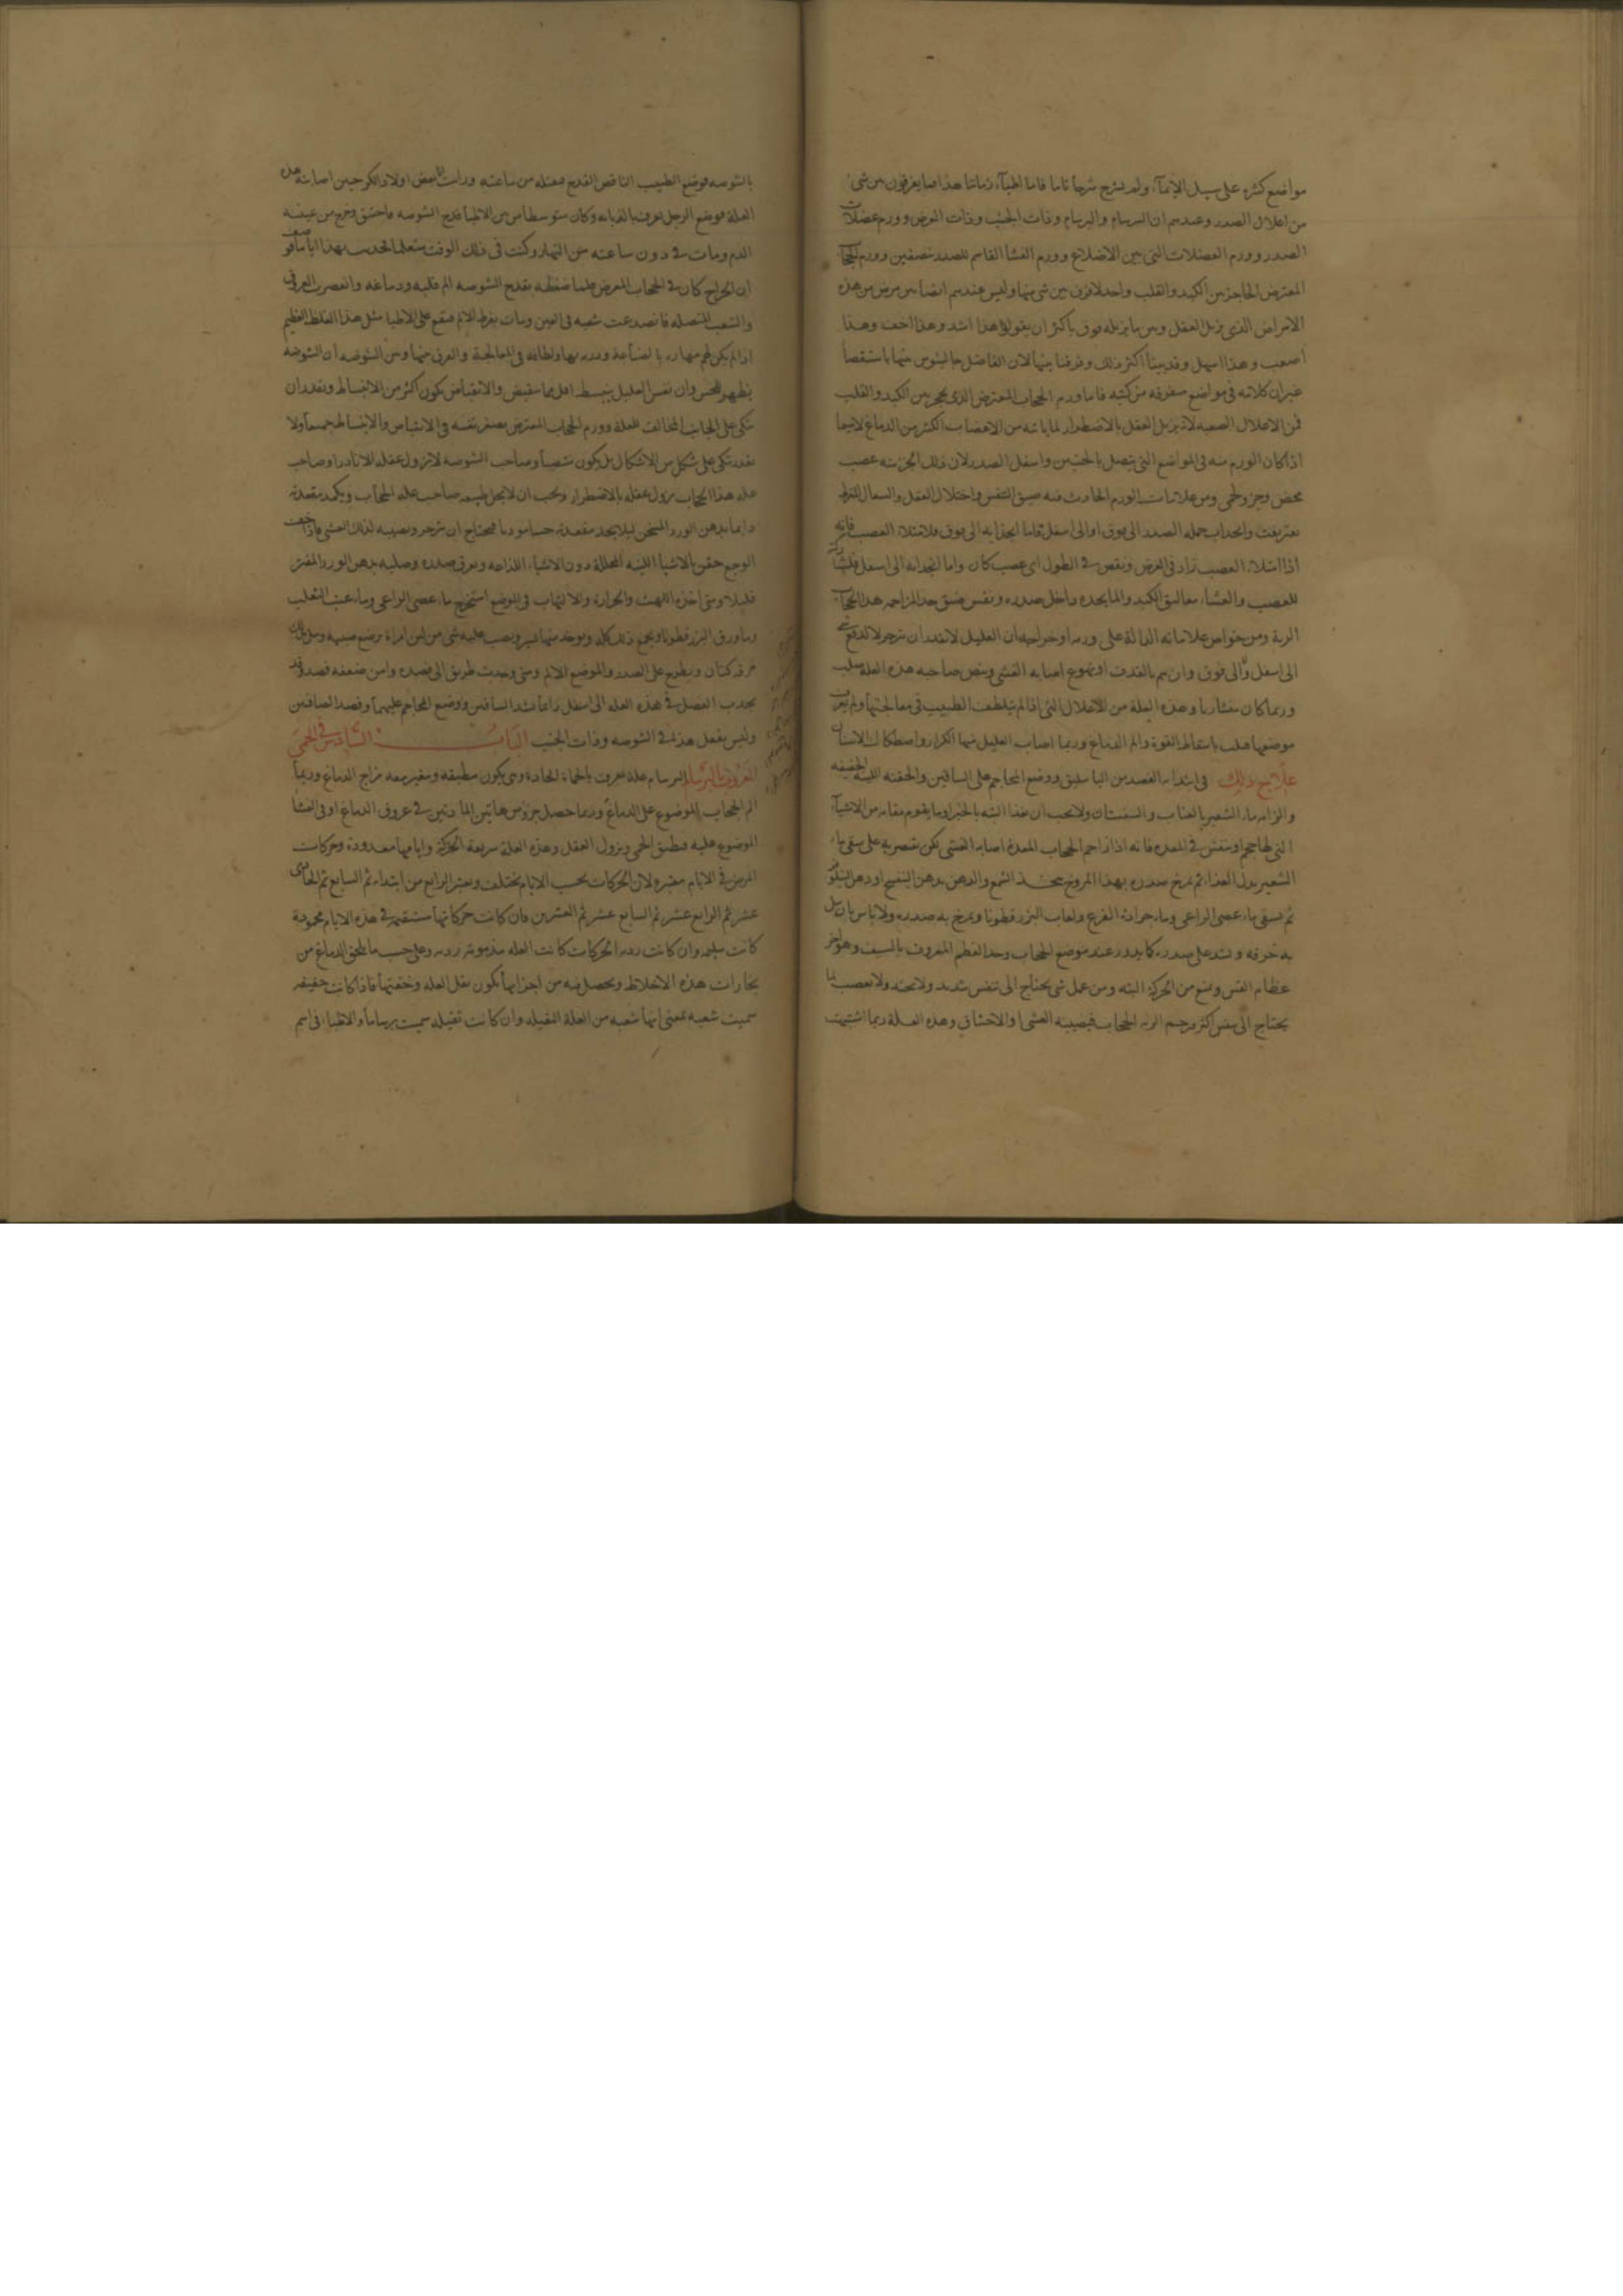 مواضع كثيرة على سبيل الإيماء ولم يشرح شرحا تاما فاما اطباء زماننا هذا فما يفرقون بين شى
من اعلال الصدر وعندهم ان السرسام والبرسام وذات الجنب وذات العرض وورم عضلات
الصدر وورم العضلات التى بين الاضلاع وورم الغشا القاسم للصدر بنصفين وورم الحجاب
المعترض الحاجز بين الكبد والقلب واحد لا فرق بين شى منها وليس عندهم ايضا بين مرض من هذه
الامراض الذى يزيل العقل وبين ما يزيله فرق باكثر ان يقولوا هذا اشد وهذا اخف وهذا
اصعب وهذا اسهل وقد بينا اكثر ذلك وفرقنا بينها لان الفاضل جالينوس بينها باستقصا
غير ان كلامه فى مواضع متفرقة من كتبه فاما ورم الحجاب المعترض الذى يحجز بين الكبد والقلب
فمن الاعلال الصعبة لانه يزيل العقل بالاضطرار لما ياتيه من الاعصاب الكثير من الدماغ لاسيما
اذا كان الورم منه فى المواضع التى يتصل بالجنبين واسفل الصدر لان ذلك الجزء منه عصب
محض وجزء لحمى ومن علامات الورم الحادث فيه ضيق النفس واختلال العقل والسعال
اذا امتلا العصب زاد فى العرض ونقص فى الطول اى عصب كان واما انجذابه الى اسفل
للعصب والغشاء معاليق الكبد والما يجده داخل صدره ونفس ضيق جدا لمزاحمة هذا الحجاب
الرية ومن خواص علاماته الدالة على ورمه او خراجه ان العليل لا يقدر ان يتزحر لا لدفع
الى اسفل ولا الى فوق وان هم بالقذف او تهوع اصابه الغشى ونبض صاحب هذه العلة صلب
وربما كان منشاريا وهذه العلة من الاعلال التى اذا لم يتلطف الطبيب فى معالجتها ولم يعرف
موضعها هلب باسقاط القوة والم الدماغ وربما اصاب العليل منها الكزاز واصطكاك الاسنان
علاج ذلك فى ابتداء الفصد من الباسليق ووضع المحاجم على الساقين والحقنة اللينة الخفيفة
والزامه ماء الشعير بالعناب والسفستان ولا يجب ان يغذا البتة بالخبز وما يقوم مقامه من الاشياء
التى لها حجم او تنفش فى المعدة فانه اذا زاحم الحجاب المعدة اصابه الغشى لكن تقتصر به على سقى ماء
الشعير بدل الغذا ثم يمرخ صدره بهذا المروخ الشمع والدهن بدهن البنفسج او دهن النيلوفر
ثم يسقى ماء عصى الراعى وماء جرادة القرع ولعاب البزرقطونا ويمرخ به صدره ولا باس بان يبل
به خرقة وتشد على صدره كما يدور عند موضع الحجاب وحد العظم المعروف بالسيف وهو اخر
عظام القس ويمنع من الحركة البتة ومن عمل شى يحتاج الى تنفس شديد ولا يحتد ولا يغضب لئلا
يحتاج الى نفس اكثر فيزحم الرية الحجاب فيصيبه الغشى والاختناق وهذه العلة ربما اشتبهت
بالشوصة فوضع الطبيب الناقص القدح فقتله من ساعته ورايت بعض اولاد الكرجيين اصابته هذه
العلة فوضع الرجل يعرف وكان متوسطا من الاطبا قدح الشوصة فاختنق وخرج من عينيه
الدم ومات فى دون ساعته من النهار وكنت فى ذلك الوقت متعلما لحديث بهذا اياما
ان الخراج كان فى الحجاب المعترض فلما ضغطه بقدح الشوصة الم قلبه ودماغه وانعصرت العروق
والشعب المتصلة فانصدعت شعبة فى العين ومات بفرط الالم فيقع على الاطبا مثل هذا الغلط العظيم
اذا لم يكن لهم مهارة بالصناعة ودربة بها ولطافة فى المعالجة والفرق بينها وبين الشوصة ان الشوصة
يظهر للحس وان نفس العليل ينبسط اقل مما ينقبض والانقباض يكون اكثر من الانبساط ويقدر ان
يتكى على الجانب المخالف للعلة وورم الحجاب المعترض يصغر نفسه فى الانقباض والانبساط جميعا ولا
يقدر يتكى على شكل من الاشكال بل يكون منتصبا وصاحب الشوصة لا يزول عقله الا نادرا وصاحب
علة هذا الحجاب يزول عقله بالاضطرار ويجب ان لا يحل طبيعة صاحب علة الحجاب ويكمد مقعدته
دايما بدهن الورد المسخن ليلا يجد مقعدته فيحتاج ان يتزحر ويصيبه لذلك الغشى فاذا خف
الوجع حقن بالاشيا اللينة المحللة دون الاشياء اللذاعة ويعرق صدره وصلبه بدهن الورد المفتر
قليلا ومتى اخذه اللهث والحرارة والالتهاب فى الموضع استخرج ماء عصى الراعى وماء عنب الثعلب
وماء ورق البزرقطونا ويجمع ذلك كله ويوخذ منها يسير ويصب عليه شى من لبن امراة ترضع صبية
خرقة كتان ويطرح على الصدر والموضع الالم ومتى وجدت طريق الى فصده وامن ضعفه فصد وقد
يجذب الفضل فى هذه العلة الى اسفل دايما بشد الساقين ووضع المحاجم عليهما وفصد الصافنين
وليس يفعل هذا فى الشوصة وذات الجنب الباب السادس فى الحمى
المعروف بالبرسام البرسام علة تعرف بالحمى الحادة ومتى يكون مطبقة ويتغير معه مزاج الدماغ وربما
الم الحجاب الموضوع على الدماغ وربما حصل جزء من هاتين المادتين فى عروق الدماغ او فى الغشا
الموضوع عليه فتطبق الحمى ويزول العقل وهذه العلة سريعة الحركة وايامها معدودة وحركات
المرض فى الايام معتبرة لان الحركات بحسب الايام يختلف ويعتبر الرابع من ابتداء ثم السابع ثم الحادى
عشر ثم الرابع عشر ثم السابع عشر ثم العشرين فان كانت حركاتها مستقيمة فى هذه الايام محمودة
كانت سليمة وان كانت ردية الحركات كانت العلة مذمومة ردية وعلى حسب ما يلحق الدماغ من
بخارات هذه الاخلاط ويحصل فيه من اجزايها يكون ثقل العلة وخفتها فاذا كانت خفيفة
سميت شعبة بمعنى انها شعبة من العلة الثقيلة وان كانت ثقيلة سميت برساما والاطباء فى اسم